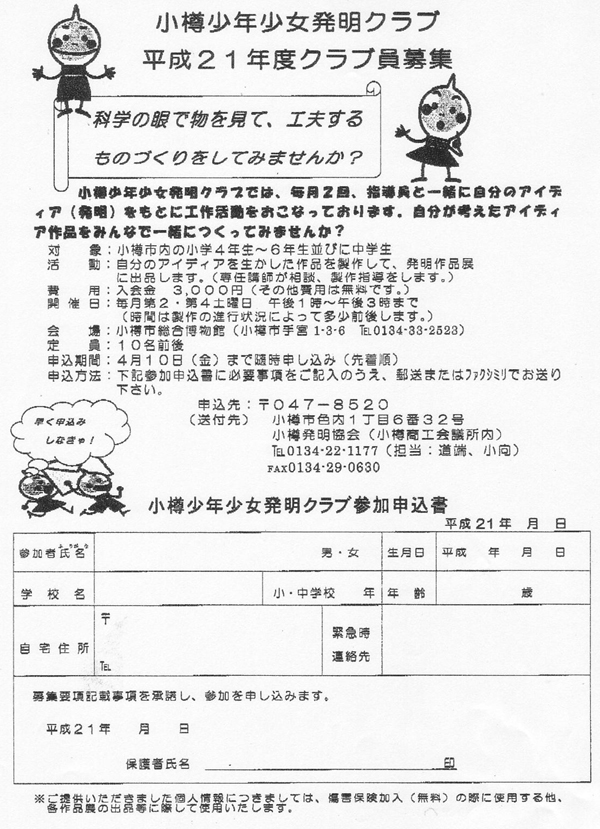 小樽少年少女発明クラブ
平成２１年度クラブ員募集
科学の眼で物を見て、工夫する
ものづくりをしてみませんか？
小樽少年少女発明クラブでは、毎月２回、指導員と一緒に自分のアイデ
ィア（発明）をもとに工作活動をおこなっております。自分が考えたアイディ
ア作品をみんなで一緒につくってみませんか？
対　　象：小樽市内の小学４年生～６年生並びに中学生
活　　動：自分のアイディアを生かした作品を製作して、発明作品展
に出品します。（専任講師が相談、製作指導をします。）
費　　用：入会金　３，０００円（その他費用は無料です。）
開 催 日：毎月第２・第４土曜日　午後１時～午後３時まで
（時間は製作の進行状況によって多少前後します。）
会　　場：小樽市総合博物館（小樽市手宮 1-3-6　℡0134-33-2523）
定　　員：１０名前後
申込期間：４月１０日（金）まで随時申し込み（先着順）
申込方法：下記参加申込書に必要事項をご記入のうえ、郵送またはﾌｧｸｼﾐﾘでお送り
下さい。
早く申込み
しなきゃ！
申込先：〒０４７－８５２０
（送付先）　小樽市色内１丁目６番３２号
小樽発明協会（小樽商工会議所内）
℡0134-22-1177（担当：道端、小向）
FAX0134-29-0630
小樽少年少女発明クラブ参加申込書
平成２１年　月　日
ふりがな
参加者氏名　男・女　生月日　平成　年　月　日
学 校 名　小・中学校　年　年　齢　歳
自宅住所　〒　℡　緊急時
連絡先
募集要項記載事項を承諾し、参加を申し込みます。
平成２１年　月　日
保護者氏名　印
※ご提供いただきました個人情報につきましては、傷害保険加入（無料）の際に使用する他、
各作品展の出品等に際して使用いたします。